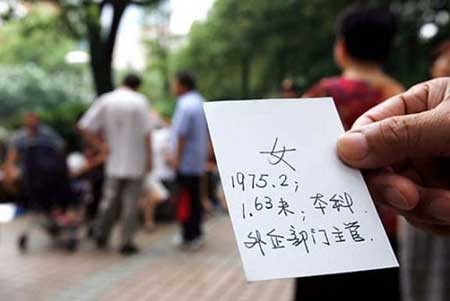 女
1975.2;
1.63米;本科.
外企部门主管.